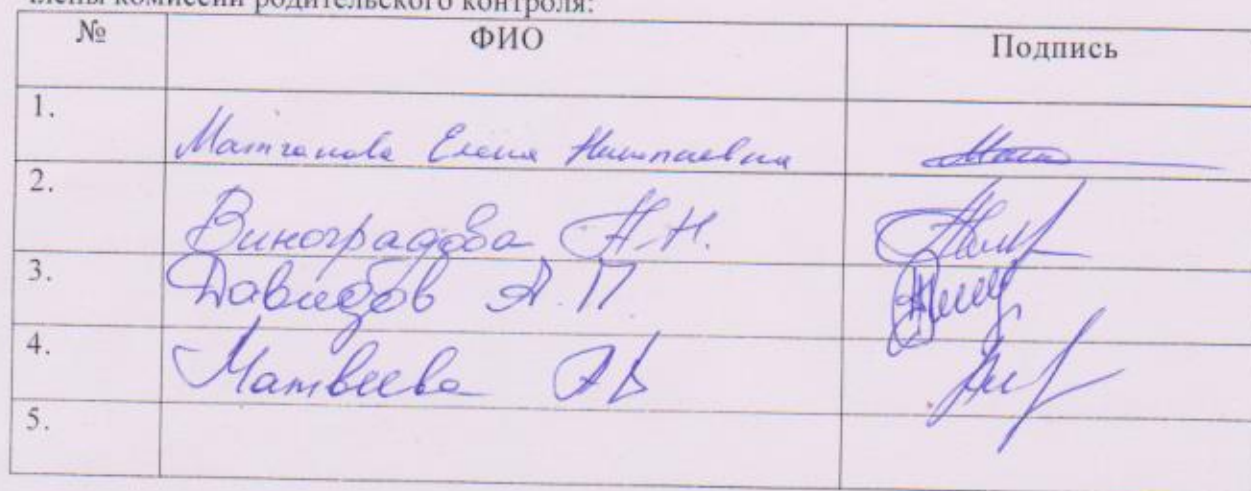 члены комиссии родительского контроля:
№ ФИО Подпись
1. Елена
2. Виноградова Н.Н.
3. Давыдов А.П.
4. Матвеева АВ
5.